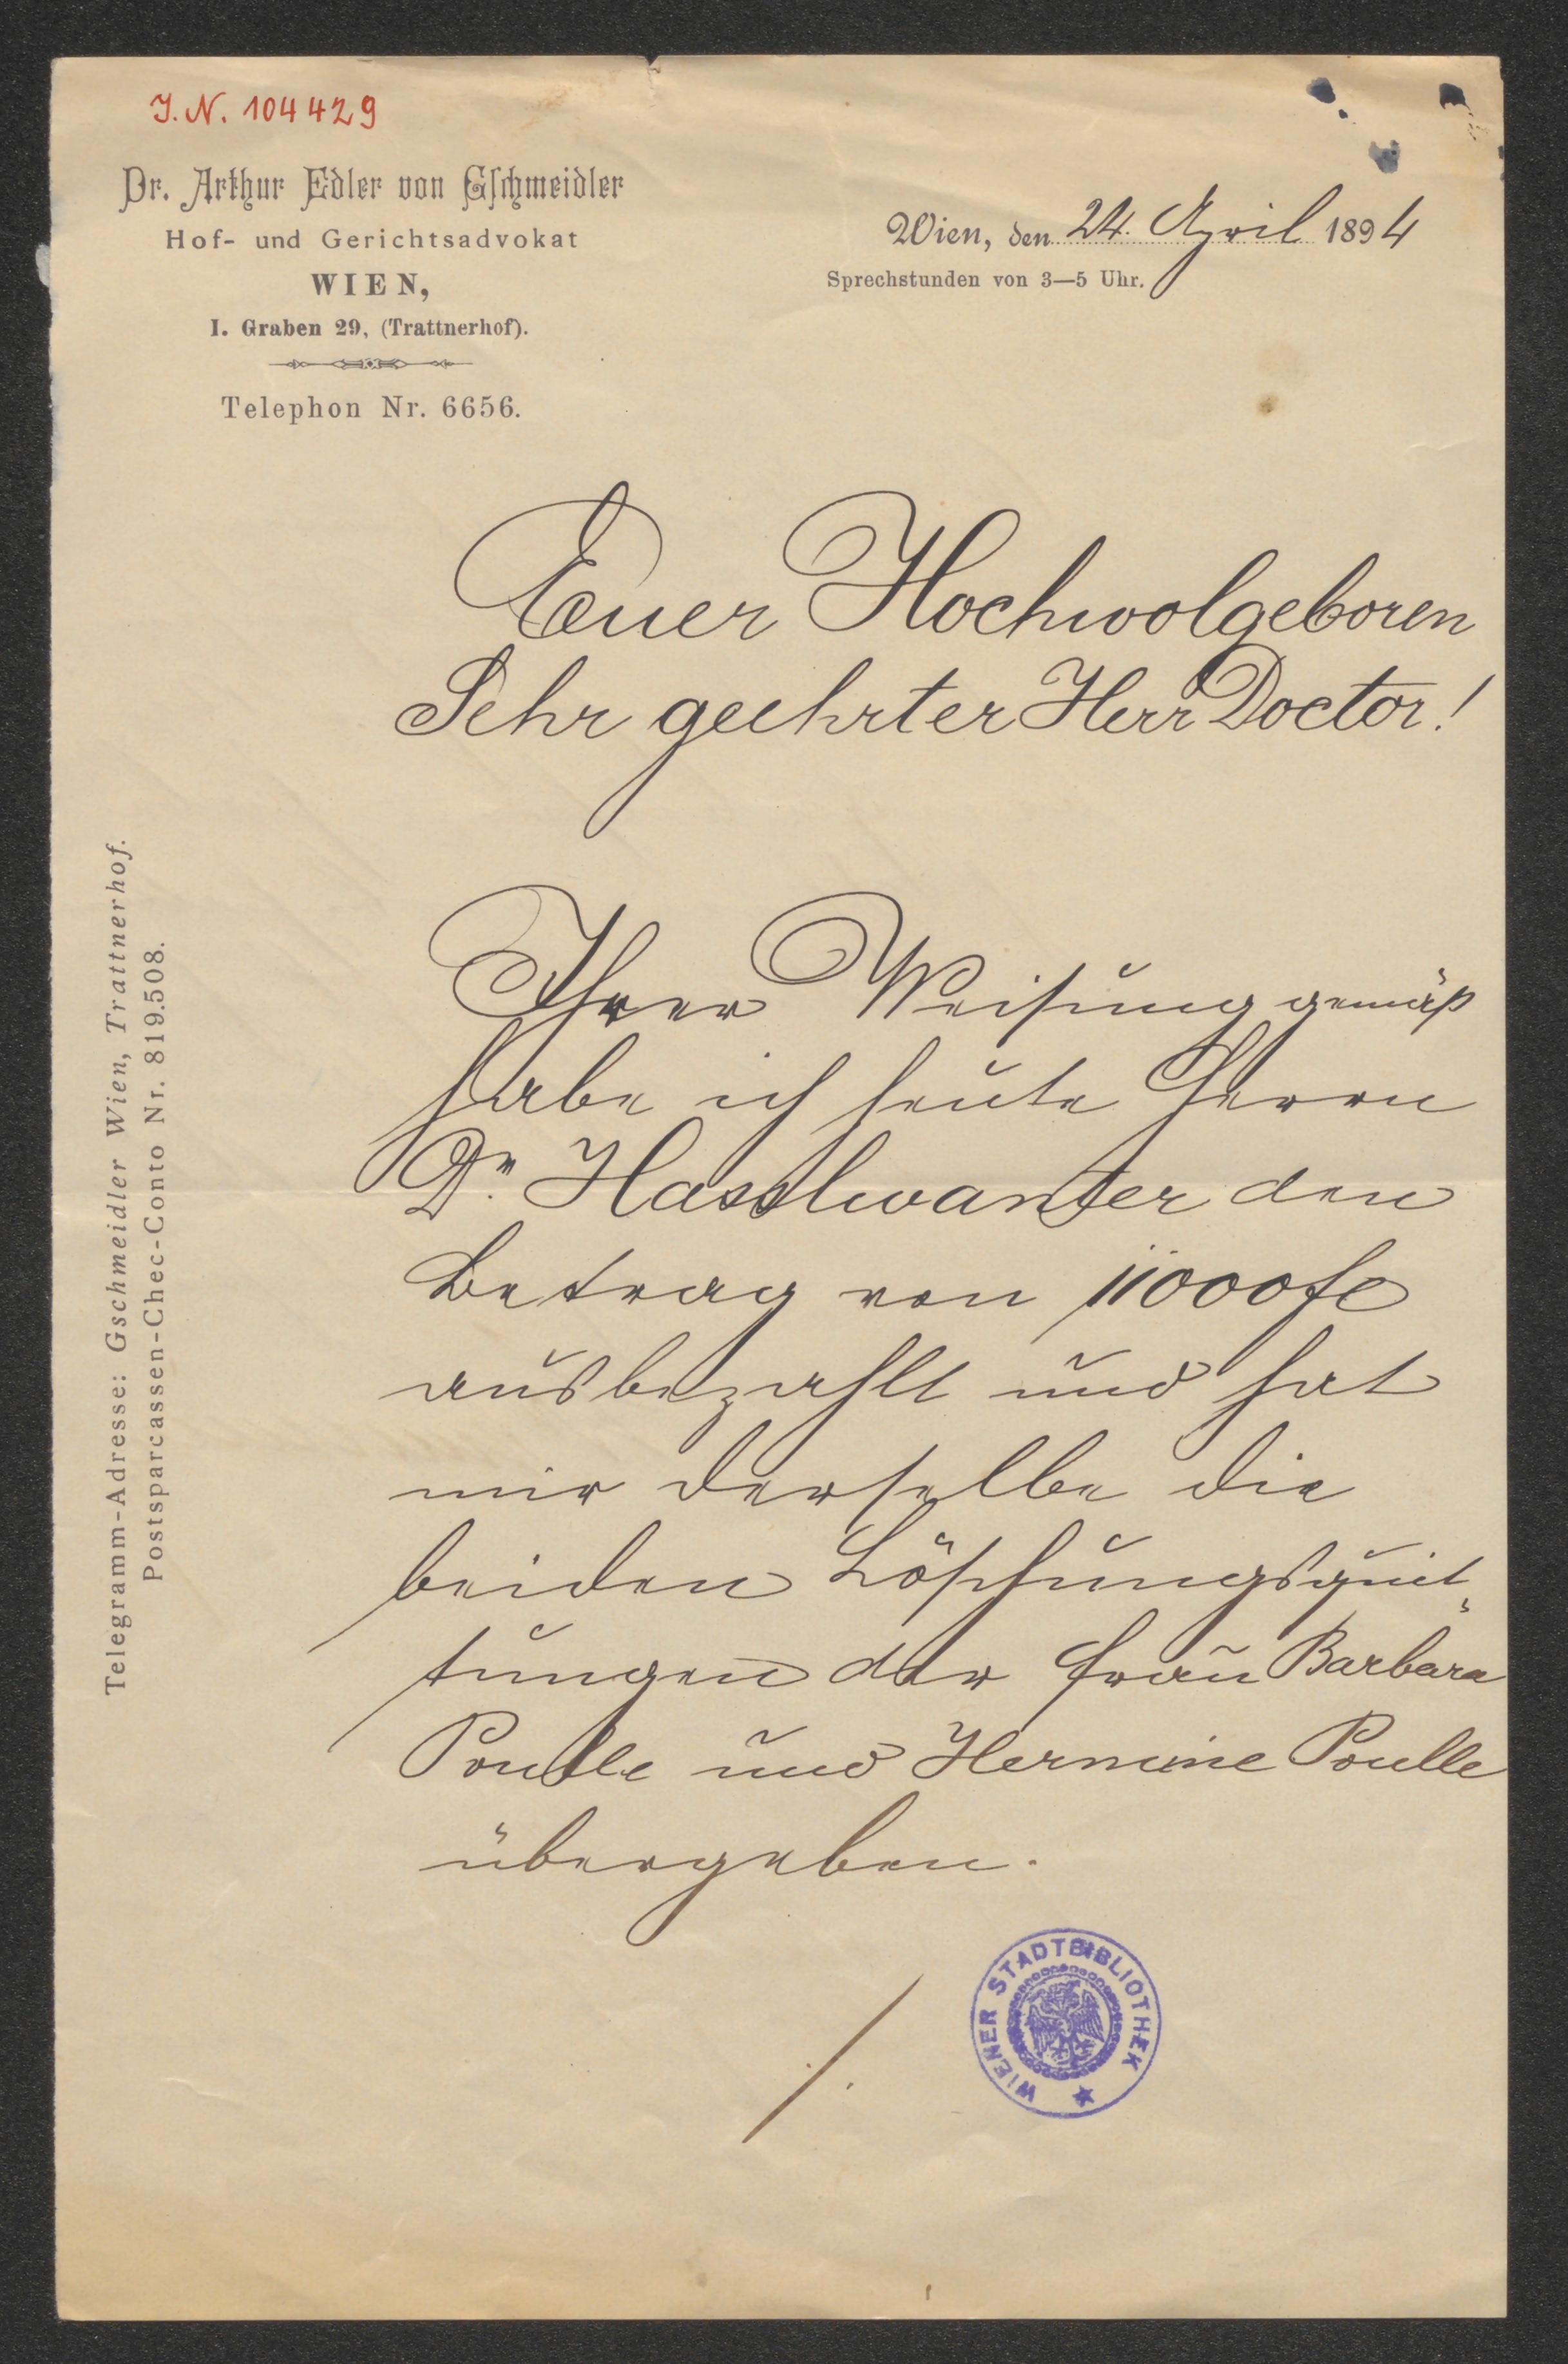 J. N. 104429
Dr. Arthur Edler von Gschmeidler
Hof- und Gerichtsadvokat
WIEN,
I. Graben 29, (Trattnerhof).
Telephon Nr. 6656.
Wien, den 24. April 1894
Sprechstunden von 3—5 Uhr.
Telegramm-Adresse: Gschmeidler Wien, Trattnerhof.
Postsparcassen-Chec-Conto Nr. 819.508.
Euer Hochwolgeboren
Sehr geehrter Herr Doctor!
Ihrer Weisung gemäß
habe ich heute Herrn
Dr. Hasslwanter den
Betrag von 11000 fl
ausbezahlt und hat
mir derselbe die
beiden Löschungsquit-
tungen der Frau Barbara
Poulle und Hermine Poulle
übergeben.
./.
WIENER STADTBIBLIOTHEK